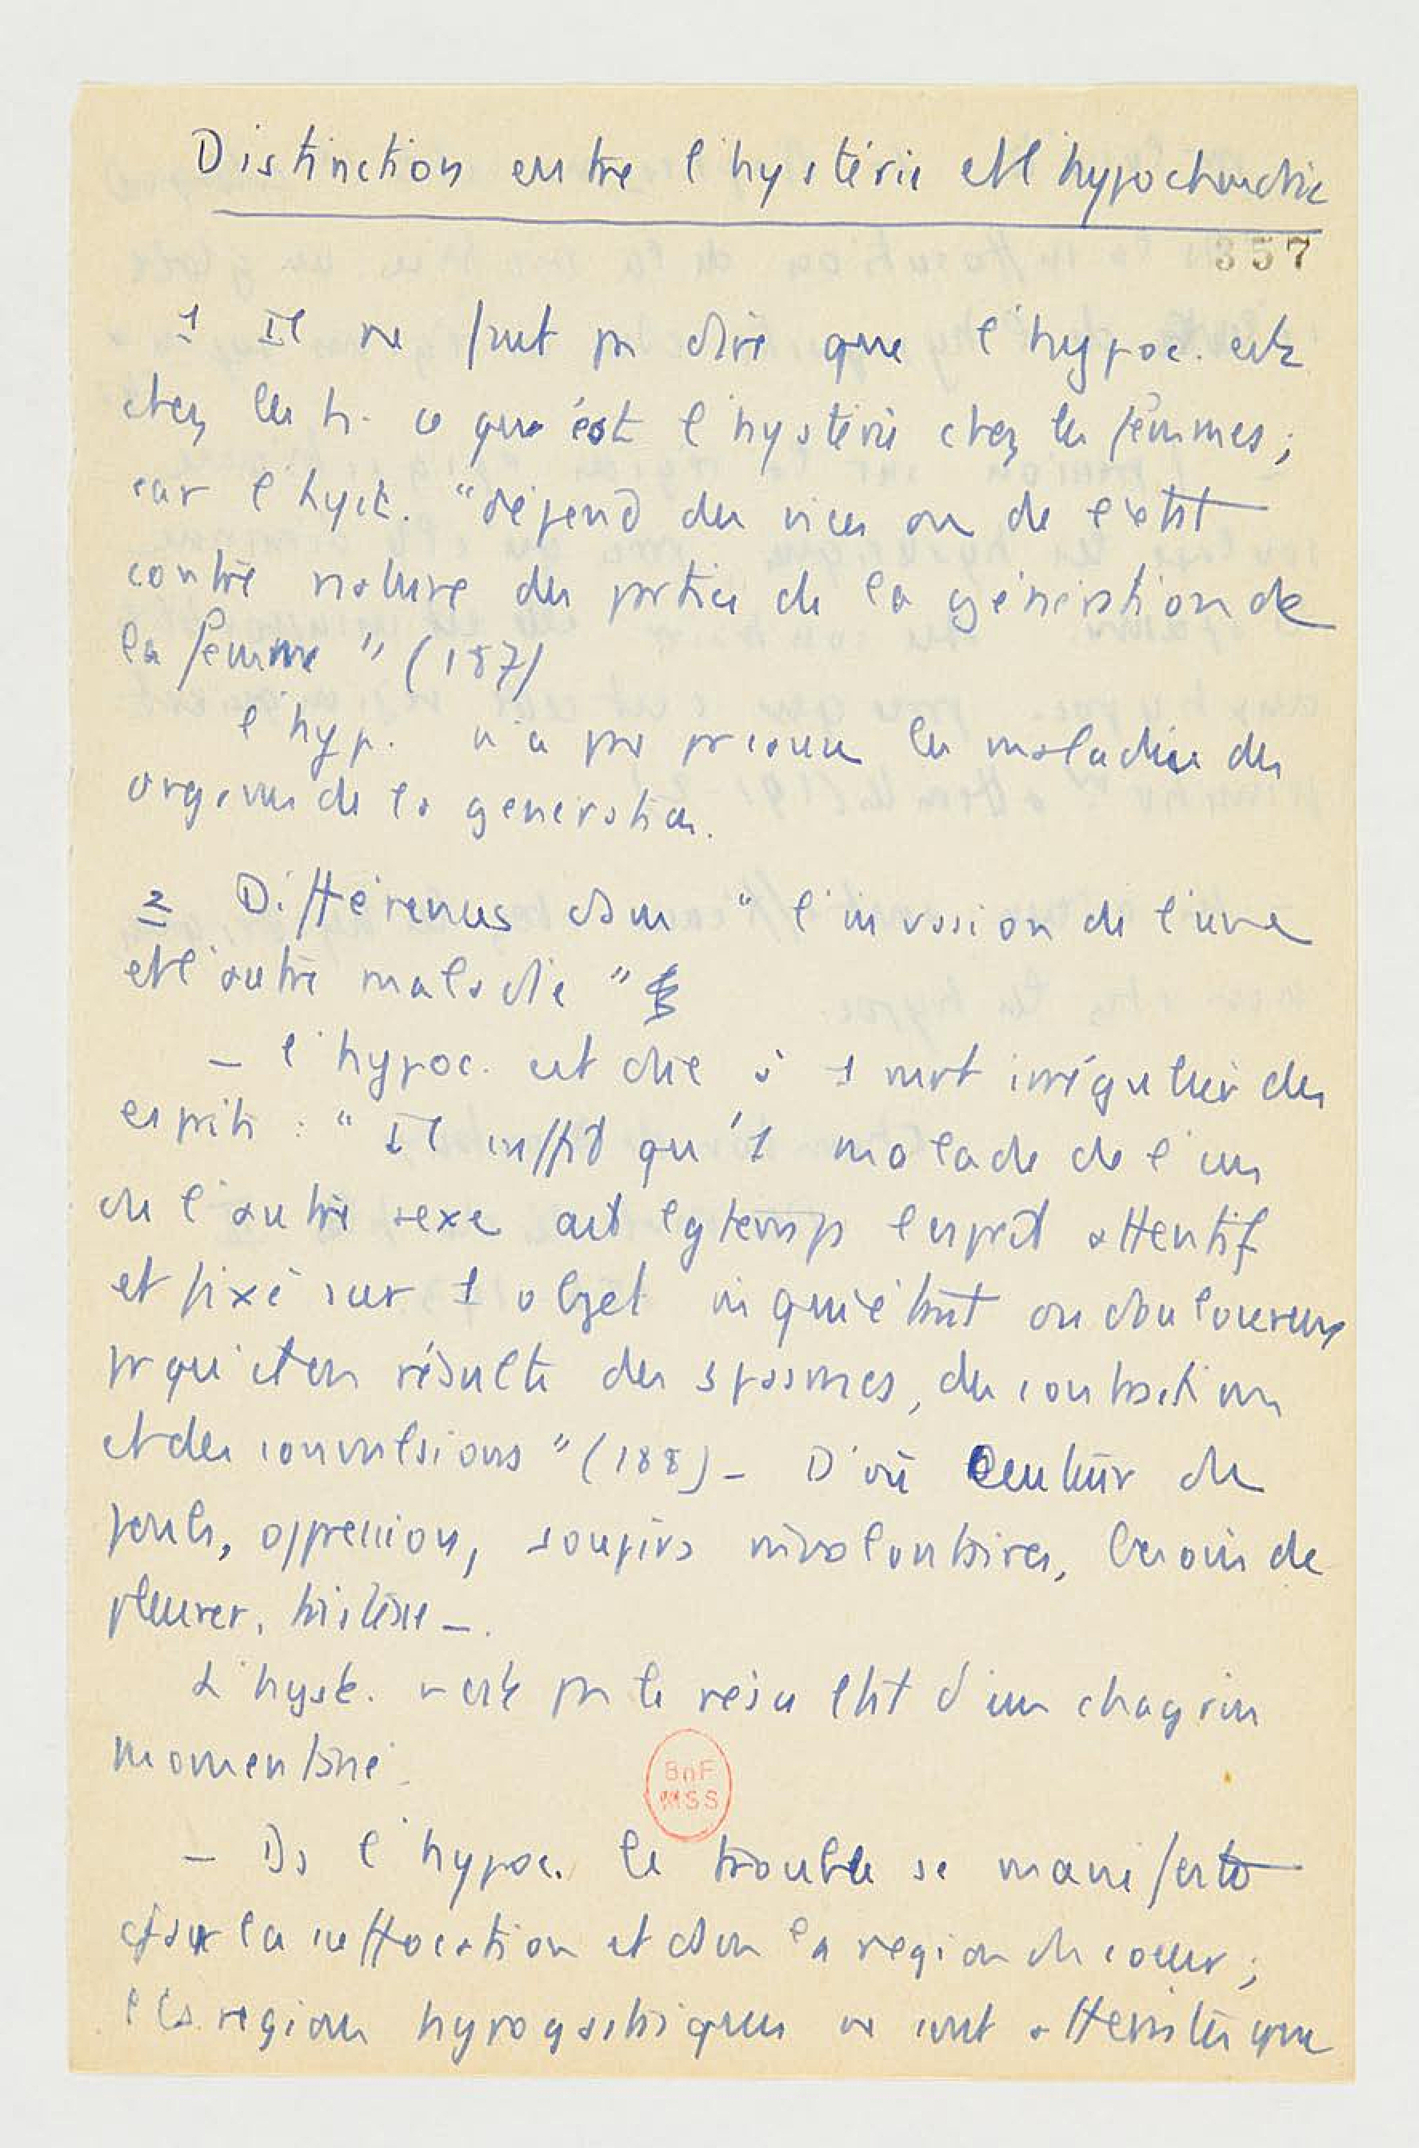 Distinction entre l'hystérie et l'hypochondrie
357
1 Il ne faut pas dire que l'hypoc. est
chez les h. ce que est l'hystérie chez les femmes ;
car l'hyst. "dépend des vices ou de l'état
contre nature des parties de la génération de
la femme" (187)
l'hyp. n'a pas pr cause les maladies des
organes de la génération.
2 Différences dans "l'invasion de l'une
et l'autre maladie"
- l'hypoc. est due à 1 mvt irrégulier des
esprits : "Il suffit qu'1 malade de l'un
ou l'autre sexe ait lgtemps l'esprit attentif
et fixé sur 1 objet inquiétant ou douloureux
pr qu'il en résulte des spasmes, des contractions
et des convulsions" (188) - D'où lenteur du
pouls, oppression, soupirs involontaires, besoin de
pleurer, tristesse -.
L'hyst. n'est pas le résultat d'un chagrin
momentané.
- Ds l'hypoc. le trouble se manifeste
par la suffocation et dans la région du coeur ;
les régions hypogastriques ne sont atteintes que
BnF
MSS